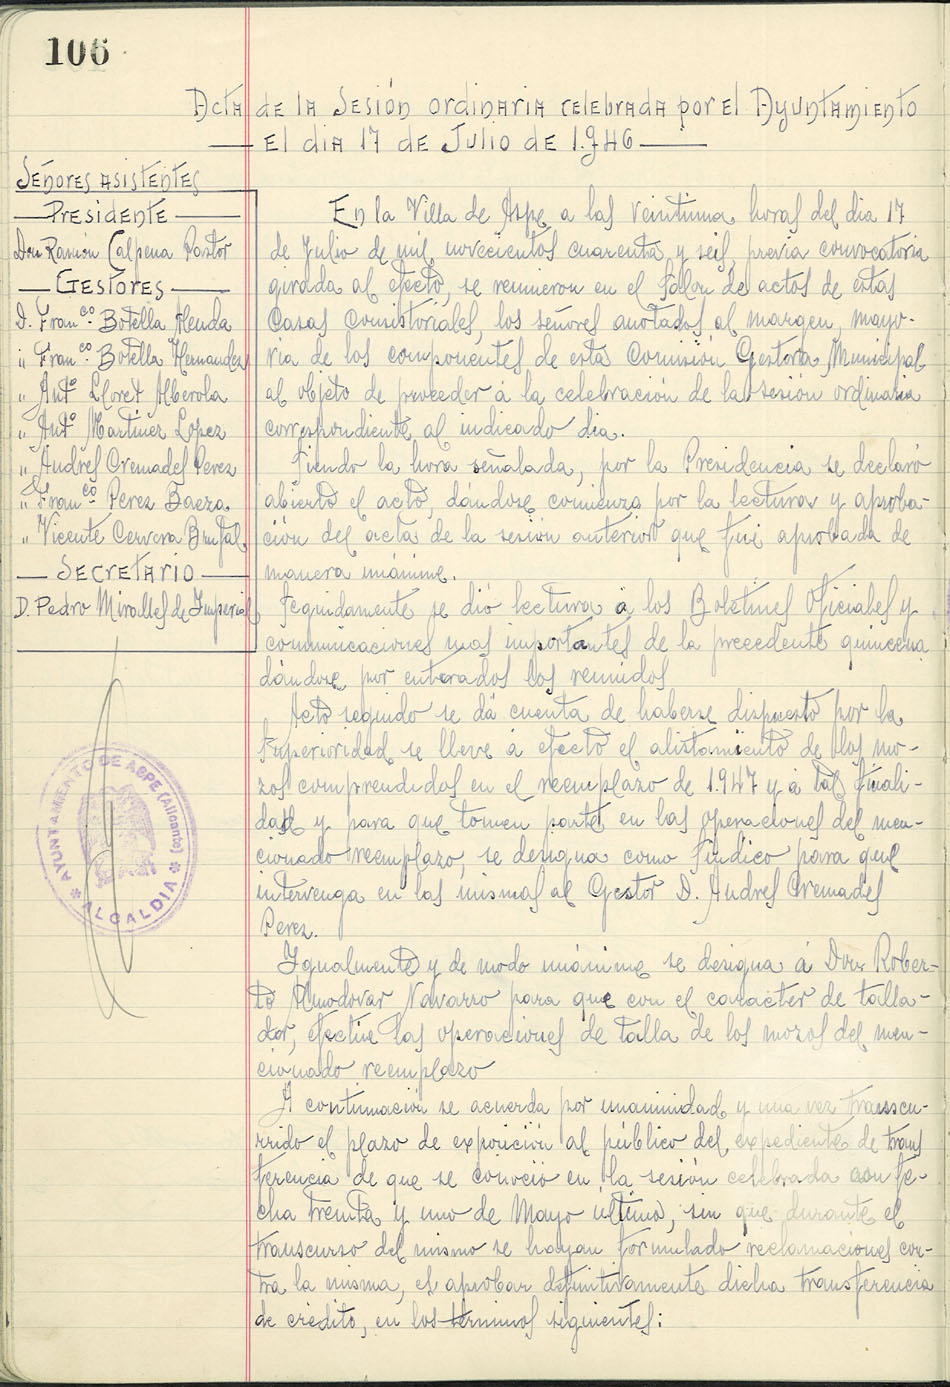 106
Acta de la Sesión ordinaria celebrada por el Ayuntamiento
el dia 17 de Julio de 1.946
Señores asistentes
Presidente
Don Ramón Calpena Pastor
Gestores
D. Franco. Botella Alenda
" Franco. Botella Hernandez
" Anto. Lloret Alberola
" Anto. Martinez Lopez
" Andres Cremades Perez
" Franco. Perez Baeza
" Vicente Cervera Brufal
Secretario
D. Pedro Miralles de Imperial
En la Villa de Aspe a las veintiuna horas del dia 17
de Julio de mil novecientos cuarenta y seis, previa convocatoria
girada al efecto, se reunieron en el Salon de actos de estas
Casas Consistoriales, los señores anotados al margen, mayo-
ria de los componentes de esta Comisión Gestora Municipal
al objeto de proceder á la celebración de la sesión ordinaria
correspondiente al indicado dia.
Siendo la hora señalada, por la Presidencia se declaró
abierto el acto, dándose comienzo por la lectura y aproba-
ción del acta de la sesión anterior que fué aprobada de
manera unánime.
Seguidamente se dió lectura a los Boletines Oficiales y
comunicaciones mas importantes de la precedente quincena
dándose por enterados los reunidos
Acto seguido se dá cuenta de haberse dispuesto por la
Superioridad se lleve á efecto el alistamiento de los mo-
zos comprendidos en el reemplazo de 1.947 y á tal finali-
dad y para que tomen parte en las operaciones del men-
cionado reemplazo, se designa como Síndico para que
intervenga en las mismas al Gestor D. Andres Cremades
Perez.
Igualmente y de modo unánime se designa á Don Rober-
to Almodovar Navarro para que con el caracter de talla-
dor, efectue las operaciones de talla de los mozos del men-
cionado reemplazo
A continuación se acuerda por unanimidad y una vez transcu-
rrido el plazo de exposición al público del expediente de trans
ferencia de que se conoció en la sesión celebrada con fe-
cha treinta y uno de Mayo último, sin que durante el
transcurso del mismo se hayan formulado reclamaciones con-
tra la misma, el aprobar definitivamente dicha transferencia
de credito, en los terminos siguientes:
AYUNTAMIENTO DE ASPE (Alicante)
ALCALDIA